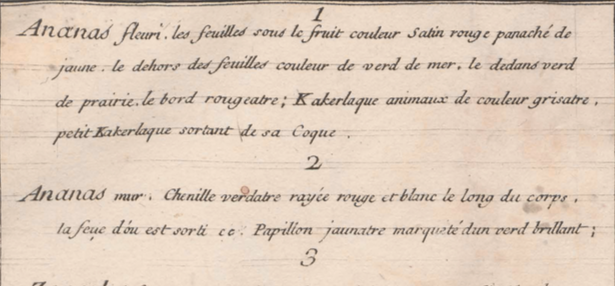 1
Ananas fleuri. les feuilles sous le fruit couleur satin rouge panaché de
jaune. le dehors des feuilles couleur de verd de mer. le dedans verd
de prairie. le bord rougeatre; Kakerlaque animaux de couleur grisatre,
petit Kakerlaque sortant de sa Coque.
2
Ananas mur. Chenille verdatre rayée rouge et blanc le long du corps,
la d'óu est sorti ce. Papillon jaunatre marqueté dun verd brillant;
3